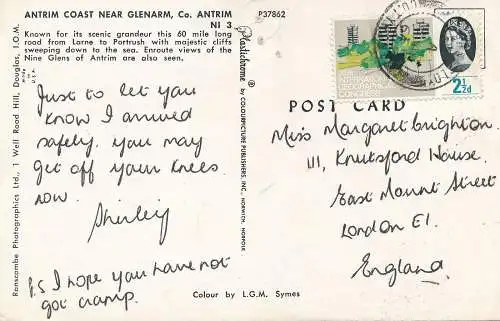 ANTRIM COAST NEAR GLENARM, Co. ANTRIM
NI 3
Known for its scenic grandeur this 60 mile long
road from Larne to Portrush with majestic cliffs
sweeping down to the sea. Enroute views of the
Nine Glens of Antrim are also seen.
P37862
Just to let you
know I arrived
safely. you may
get off your knees
now.
Shirley
P.S I hope you have not
got cramp.
Ramscombe Photographics Ltd., 1 Well Road Hill, Douglas, I.O.M.
U.S.A.
Plastichrome ®
by COLOURPICTURE PUBLISHERS, INC., NORWICH, NORFOLK
Colour by L.G.M. Symes
INTERNATIONAL
GEOGRAPHICAL
CONGRESS
2½d
POST CARD
Miss Margaret Brighton
111, Knutsford House.
East Mount Street
London E1.
England.